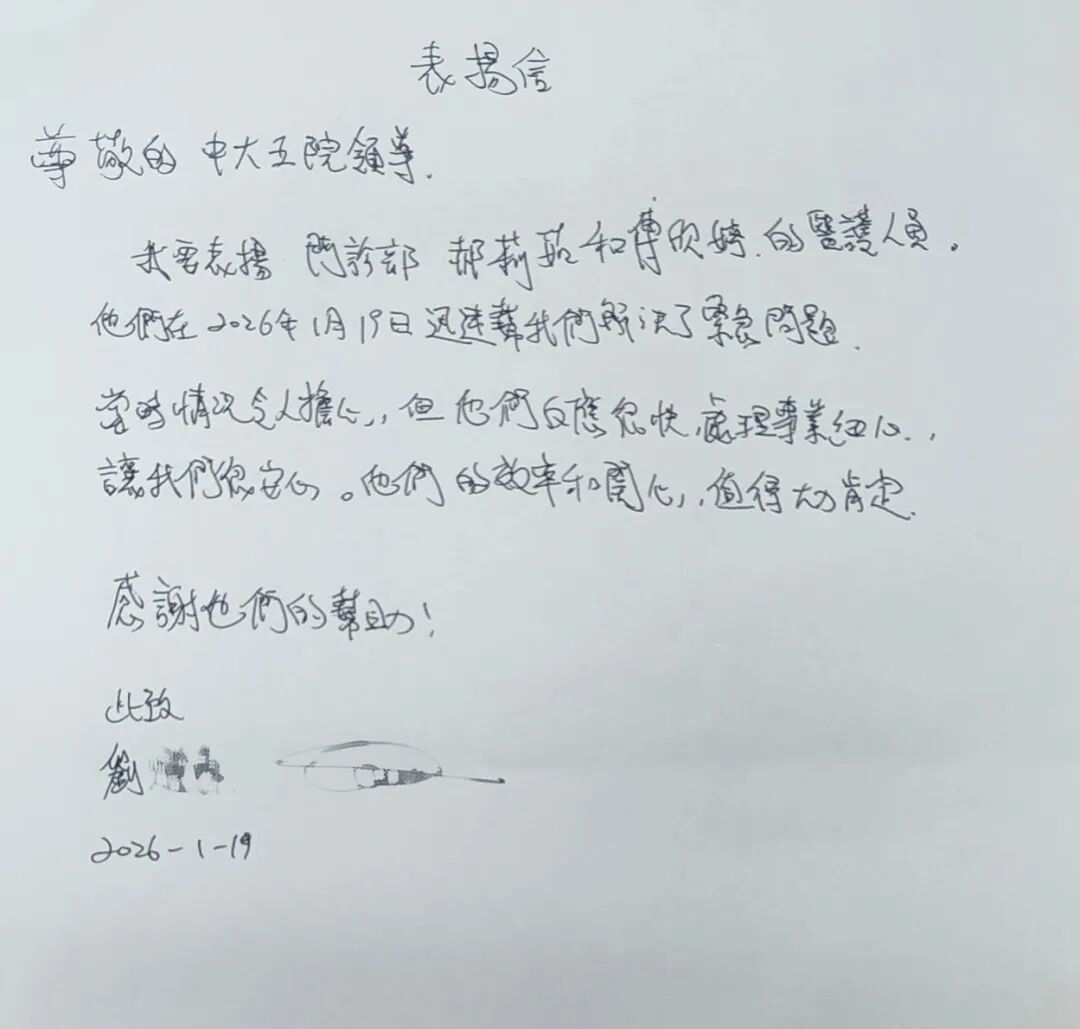 表揚信
尊敬的 中大五院領導.
我要表揚 門診部 郝莉茹和傅欣婷.的醫護人員。
他們在2026年1月19日迅速幫我們解決了緊急問題.
當時情況令人擔心,但他們反應很快,處理專業細心.,
讓我們很安心。他們的效率和關心,值得大力肯定.
感謝他們的幫助!
此致
劉
2026-1-19